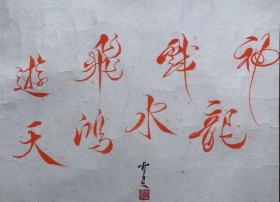 神龍
戲水
飛鴻
遊天